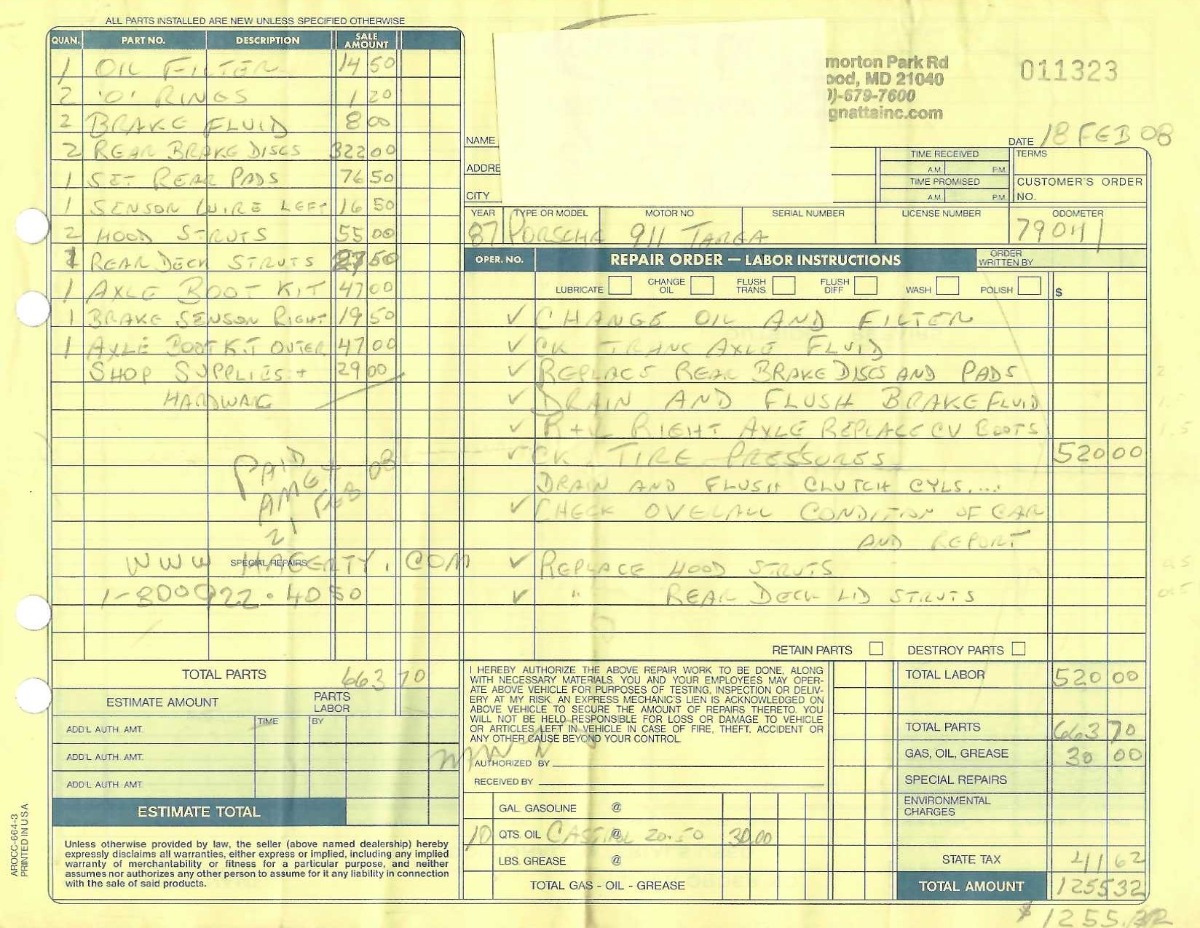 ALL PARTS INSTALLED ARE NEW UNLESS SPECIFIED OTHERWISE
QUAN. PART NO. DESCRIPTION SALE AMOUNT
1 OIL FILTER 14 50
2 'O' RINGS 1 20
2 BRAKE FLUID 8 00
2 REAR BRAKE DISCS 322 00
1 SET REAR PADS 76 50
1 SENSOR WIRE LEFT 16 50
2 HOOD STRUTS 55 00
REAR DECK STRUTS 27 50
1 AXLE BOOT KIT 47 00
1 BRAKE SENSOR RIGHT 19 50
1 AXLE BOOT KIT OUTER 47 00
SHOP SUPPLIES + 29 00
HARDWARE
PAID
21 FEB 08
SPECIAL REPAIRS
WWW HAGERTY.COM
1-800 922-4050
TOTAL PARTS 663 70
ESTIMATE AMOUNT PARTS LABOR
ADD'L AUTH. AMT. TIME BY
ADD'L AUTH. AMT.
ADD'L AUTH. AMT.
ESTIMATE TOTAL
Unless otherwise provided by law, the seller (above named dealership) hereby
expressly disclaims all warranties, either express or implied, including any implied
warranty of merchantability or fitness for a particular purpose, and neither
assumes nor authorizes any other person to assume for it any liability in connection
with the sale of said products.
AROCC-664-3
PRINTED IN U.S.A
morton Park Rd
ood, MD 21040
)-679-7600
gnattsinc.com
011323
NAME
DATE 18 FEB 08
ADDRE
CITY
TIME RECEIVED A.M. P.M.
TIME PROMISED A.M. P.M.
TERMS
CUSTOMER'S ORDER NO.
YEAR TYPE OR MODEL MOTOR NO SERIAL NUMBER LICENSE NUMBER ODOMETER
87 PORSCHE 911 TARGA 79041
OPER. NO. REPAIR ORDER — LABOR INSTRUCTIONS ORDER WRITTEN BY
LUBRICATE CHANGE OIL FLUSH TRANS. FLUSH DIFF WASH POLISH $
✓ CHANGE OIL AND FILTER
✓ CK TRANS AXLE FLUID
✓ REPLACE REAR BRAKE DISCS AND PADS
✓ DRAIN AND FLUSH BRAKE FLUID
✓ R+R RIGHT AXLE REPLACE CV BOOTS
✓ CK TIRE PRESSURES 520 00
DRAIN AND FLUSH CLUTCH CYLS....
✓ CHECK OVERALL CONDITION OF CAR
AND REPORT
✓ REPLACE HOOD STRUTS
✓ " REAR DECK LID STRUTS
RETAIN PARTS DESTROY PARTS
I HEREBY AUTHORIZE THE ABOVE REPAIR WORK TO BE DONE, ALONG
WITH NECESSARY MATERIALS. YOU AND YOUR EMPLOYEES MAY OPER-
ATE ABOVE VEHICLE FOR PURPOSES OF TESTING, INSPECTION OR DELIV-
ERY AT MY RISK. AN EXPRESS MECHANIC'S LIEN IS ACKNOWLEDGED ON
ABOVE VEHICLE TO SECURE THE AMOUNT OF REPAIRS THERETO. YOU
WILL NOT BE HELD RESPONSIBLE FOR LOSS OR DAMAGE TO VEHICLE
OR ARTICLES LEFT IN VEHICLE IN CASE OF FIRE, THEFT, ACCIDENT OR
ANY OTHER CAUSE BEYOND YOUR CONTROL.
AUTHORIZED BY
RECEIVED BY
GAL. GASOLINE @
10 QTS. OIL CASTROL @ 20-50 30.00
LBS. GREASE @
TOTAL GAS - OIL - GREASE
TOTAL LABOR 520 00
TOTAL PARTS 663 70
GAS, OIL, GREASE 30 00
SPECIAL REPAIRS
ENVIRONMENTAL CHARGES
STATE TAX 41 62
TOTAL AMOUNT 1255 32
$ 1255.32